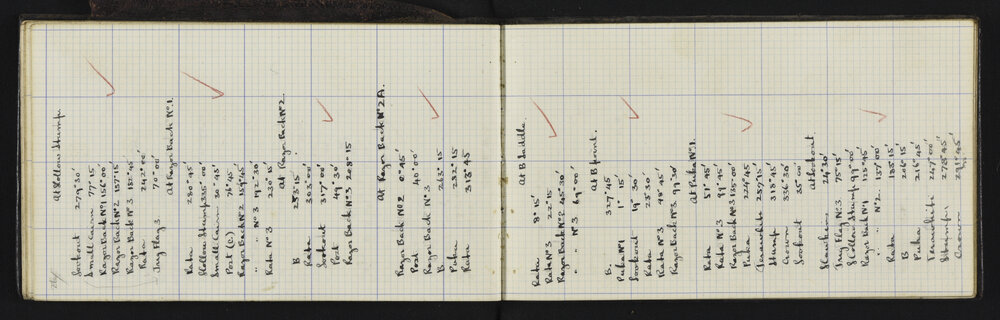 At Hollow Stump
Lookout 279°30'
Small Cairn 77°15'
Razor Back Nº1 156°00'
Razor Back Nº2 157°15'
Razor Back Nº3 181°45'
Rata 242°00'
Flag 3 70°00'
At Razor Back Nº1.
Rata 280°45'
Hollow Stump 335°00'
Small Cairn 30°45'
Post (c.) 76°45'
Razor Back Nº2 159°45'
" " Nº3 192°30
Rata Nº3 220°15'
At Razor Back Nº2.
B 253°15'
Rata 303°00'
Lookout 317°00'
Post 49°30'
Razor Back Nº3 208°15
At Razor Back Nº2A.
Razor Back Nº2 0°45'
Post 40°00'
Razor Back Nº3
B 263°15
Puka 282°15
Rata 313°45
At B Saddle.
Rata 8°15'
Rata Nº3 22°15'
Razor Back Nº2 45°30'
" " Nº3 69°00'
At B point.
B. 327°45'
Puka Nº1 1°15'
Lookout 19°30'
Rata 25°30
Rata Nº3 48°45'
Razor Back Nº3 99°30'
At Puka Nº1.
Rata 51°45'
Rata Nº3 89°45'
Razor Back Nº3 135°00'
Puka 224°45'
Terawhiti 259°15'
Stump 318°45'
Crown 336°30'
Lookout 35°00'
At Lookout.
24°30'
Flag Nº3 75°15'
Hollow Stump 99°00'
Razor Back Nº1 125°45'
" " Nº2. 137°00'
Rata 185°15'
B 206°15
Puka 216°45'
Terawhiti 247°00'
Stump 275°45'
Crown 291°45'